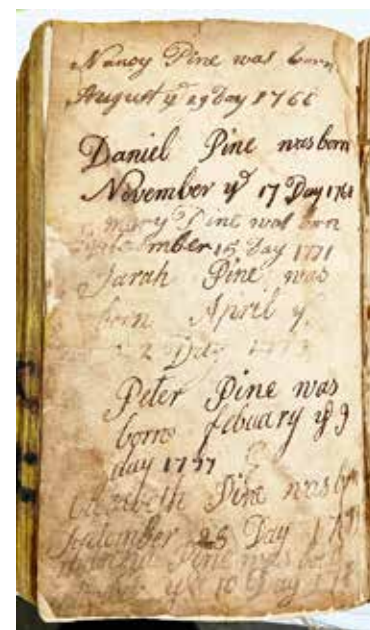 Nancy Pine was born
August yᵉ 29 Day 1766
Daniel Pine was born
November yᵉ 17 Day 1768
mary Pine was born
mber 15 Day 1771
Sarah Pine was
born April yᵉ
2 Day
Peter Pine was
born febuary yᵉ 9
day 1777
Elizabeth Pine was
September 25 Day
Pine was born
yᵉ 10 Day